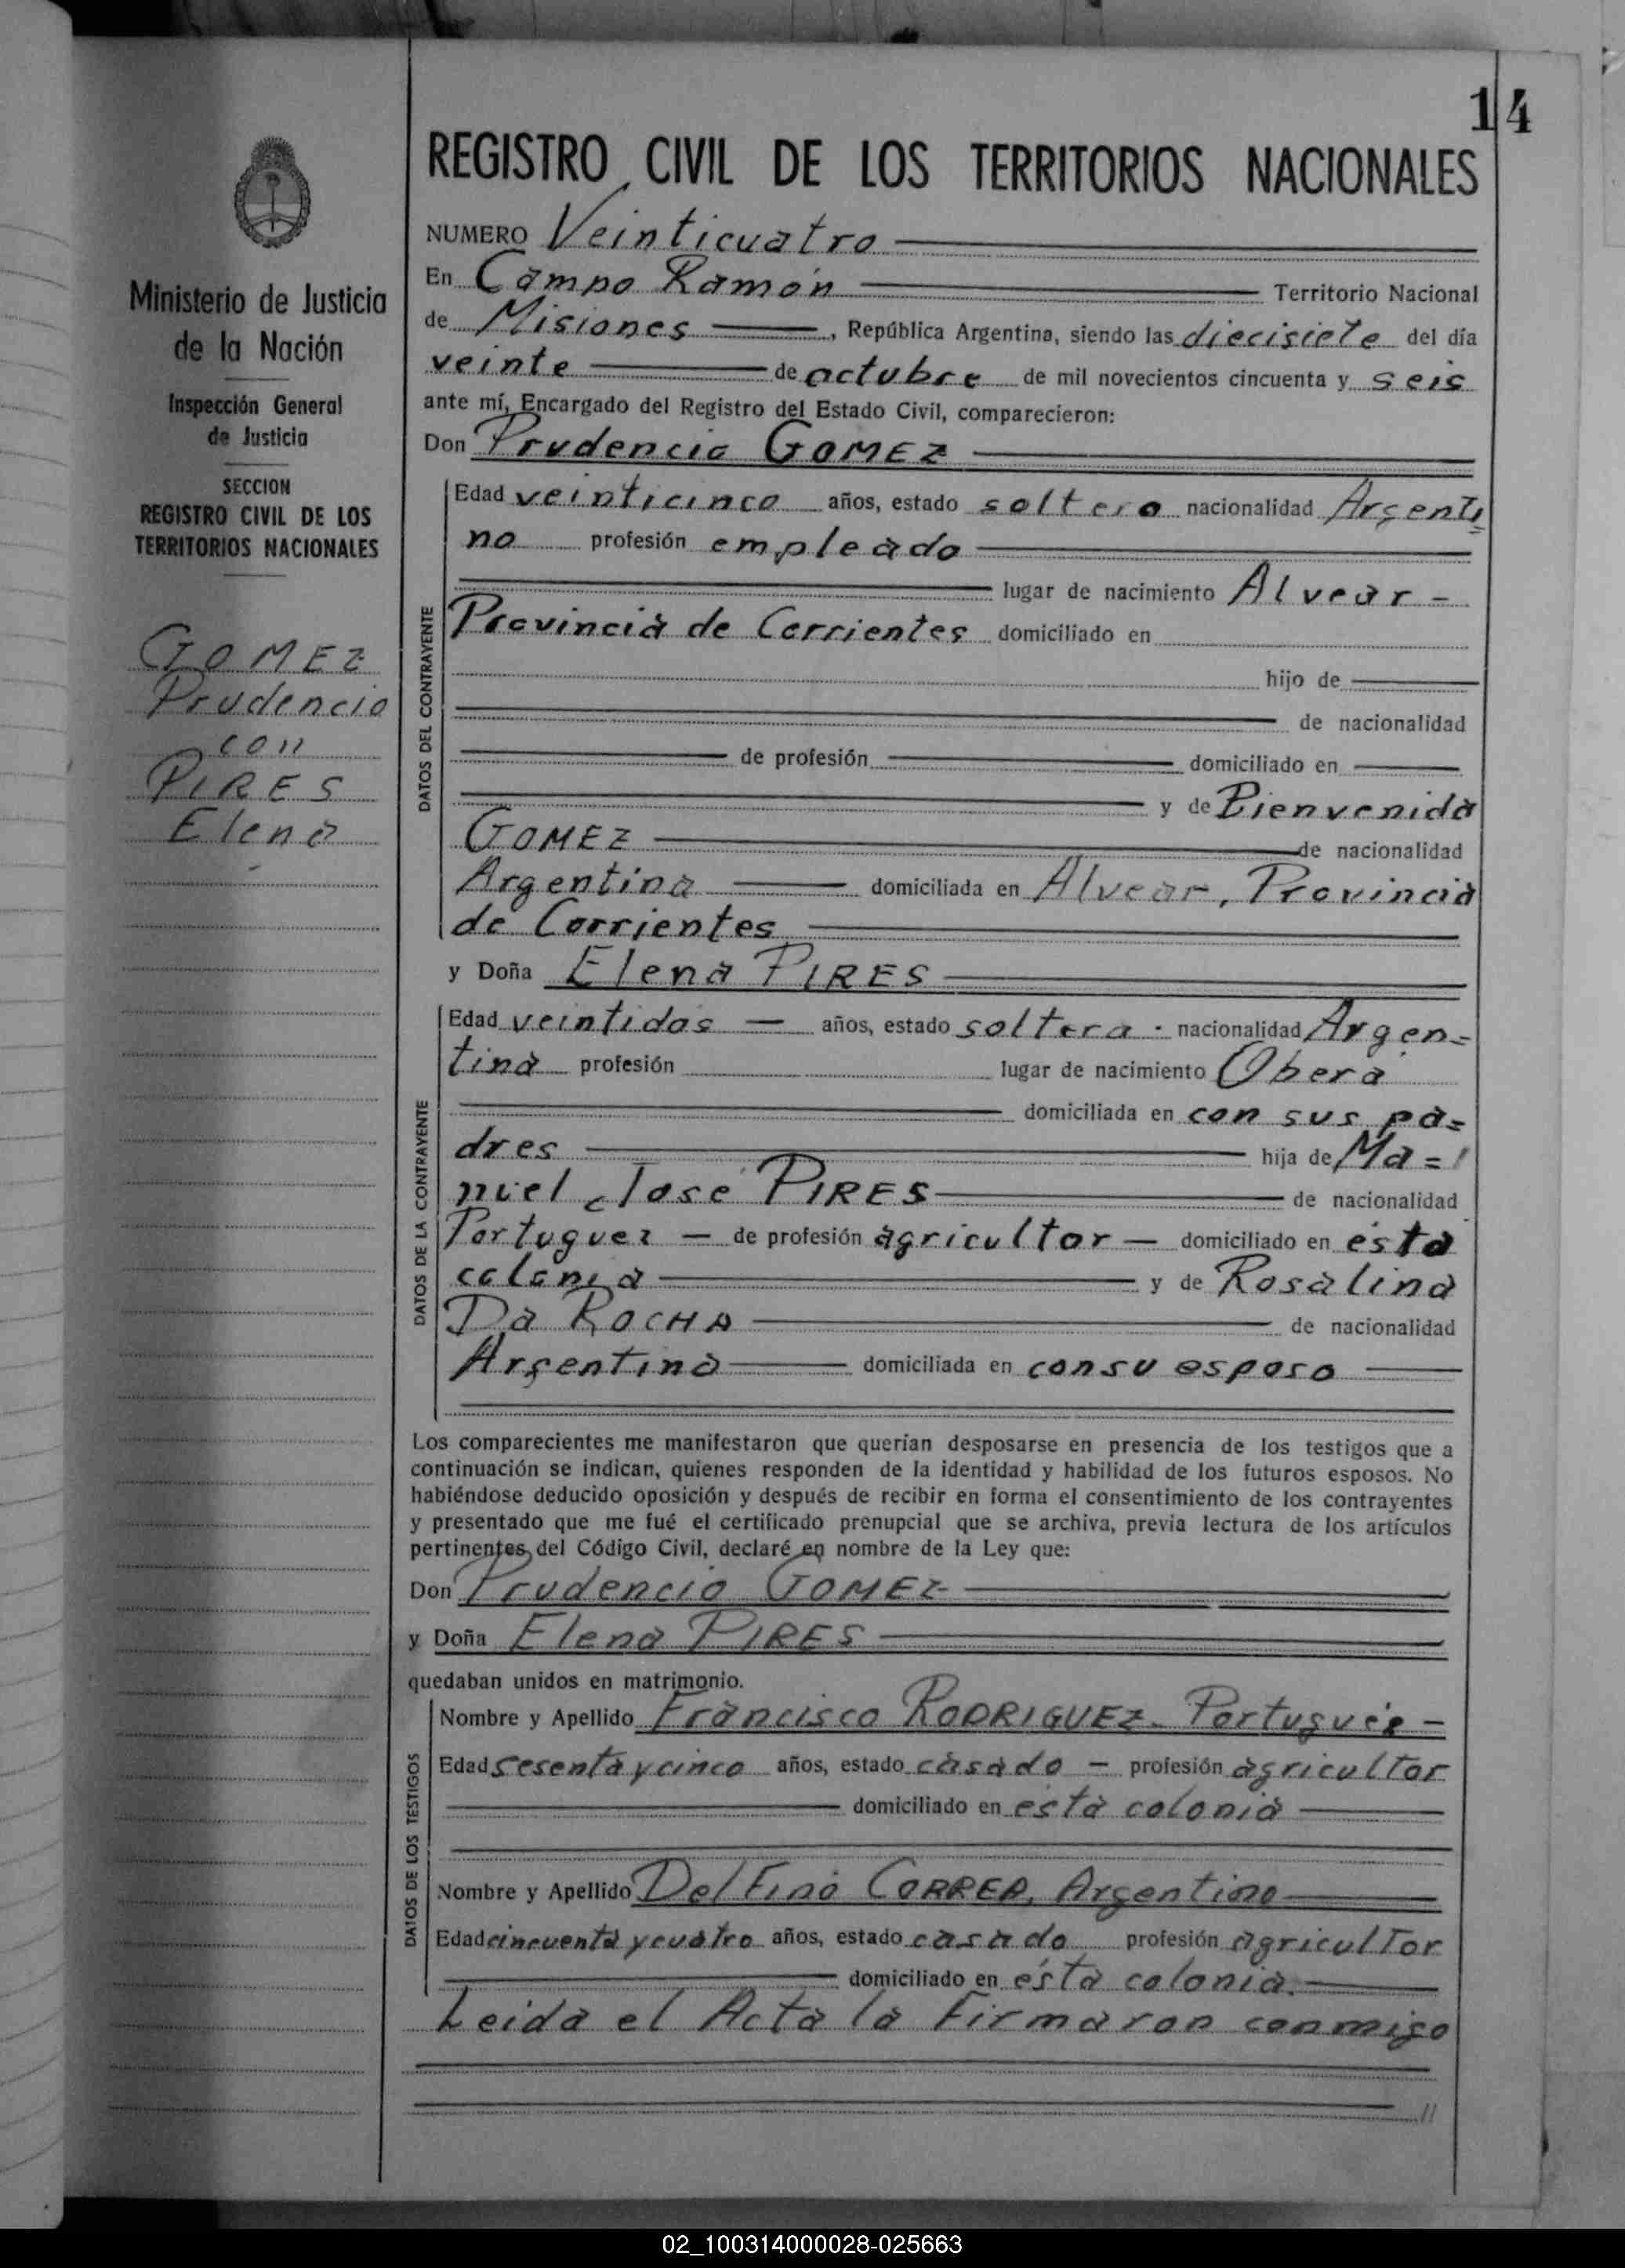 14
REGISTRO CIVIL DE LOS TERRITORIOS NACIONALES
Ministerio de Justicia
de la Nación
Inspección General
de Justicia
SECCION
REGISTRO CIVIL DE LOS
TERRITORIOS NACIONALES
GOMEZ
Prudencio
con
PIRES
Elena
NUMERO Veinticuatro
En Campo Ramón Territorio Nacional
de Misiones, República Argentina, siendo las diecisiete del día
veinte de octubre de mil novecientos cincuenta y seis
ante mí, Encargado del Registro del Estado Civil, comparecieron:
Don Prudencio GOMEZ
DATOS DEL CONTRAYENTE
Edad veinticinco años, estado soltero nacionalidad Argenti=
no profesión empleado
lugar de nacimiento Alvear -
Provincia de Corrientes domiciliado en
hijo de
de nacionalidad
de profesión domiciliado en
y de Bienvenida
GOMEZ de nacionalidad
Argentina domiciliada en Alvear, Provincia
de Corrientes
y Doña Elena PIRES
DATOS DE LA CONTRAYENTE
Edad veintidos — años, estado soltera - nacionalidad Argen=
tina profesión lugar de nacimiento Oberá
domiciliada en con sus pa=
dres hija de Ma=
nuel José PIRES de nacionalidad
Portuguez — de profesión agricultor — domiciliado en ésta
colonia y de Rosalina
Da ROCHA de nacionalidad
Argentina domiciliada en con su esposo
Los comparecientes me manifestaron que querían desposarse en presencia de los testigos que a
continuación se indican, quienes responden de la identidad y habilidad de los futuros esposos. No
habiéndose deducido oposición y después de recibir en forma el consentimiento de los contrayentes
y presentado que me fué el certificado prenupcial que se archiva, previa lectura de los artículos
pertinentes del Código Civil, declaré en nombre de la Ley que:
Don Prudencio GOMEZ
y Doña Elena PIRES
quedaban unidos en matrimonio.
DATOS DE LOS TESTIGOS
Nombre y Apellido Francisco RODRIGUEZ - Portugués -
Edad sesenta y cinco años, estado casado — profesión agricultor
domiciliado en esta colonia
Nombre y Apellido Delfino CORREA, Argentino
Edad cincuenta y cuatro años, estado casado profesión agricultor
domiciliado en ésta colonia.
Leida el Acta la firmaron conmigo
//
02_100314000028-025663